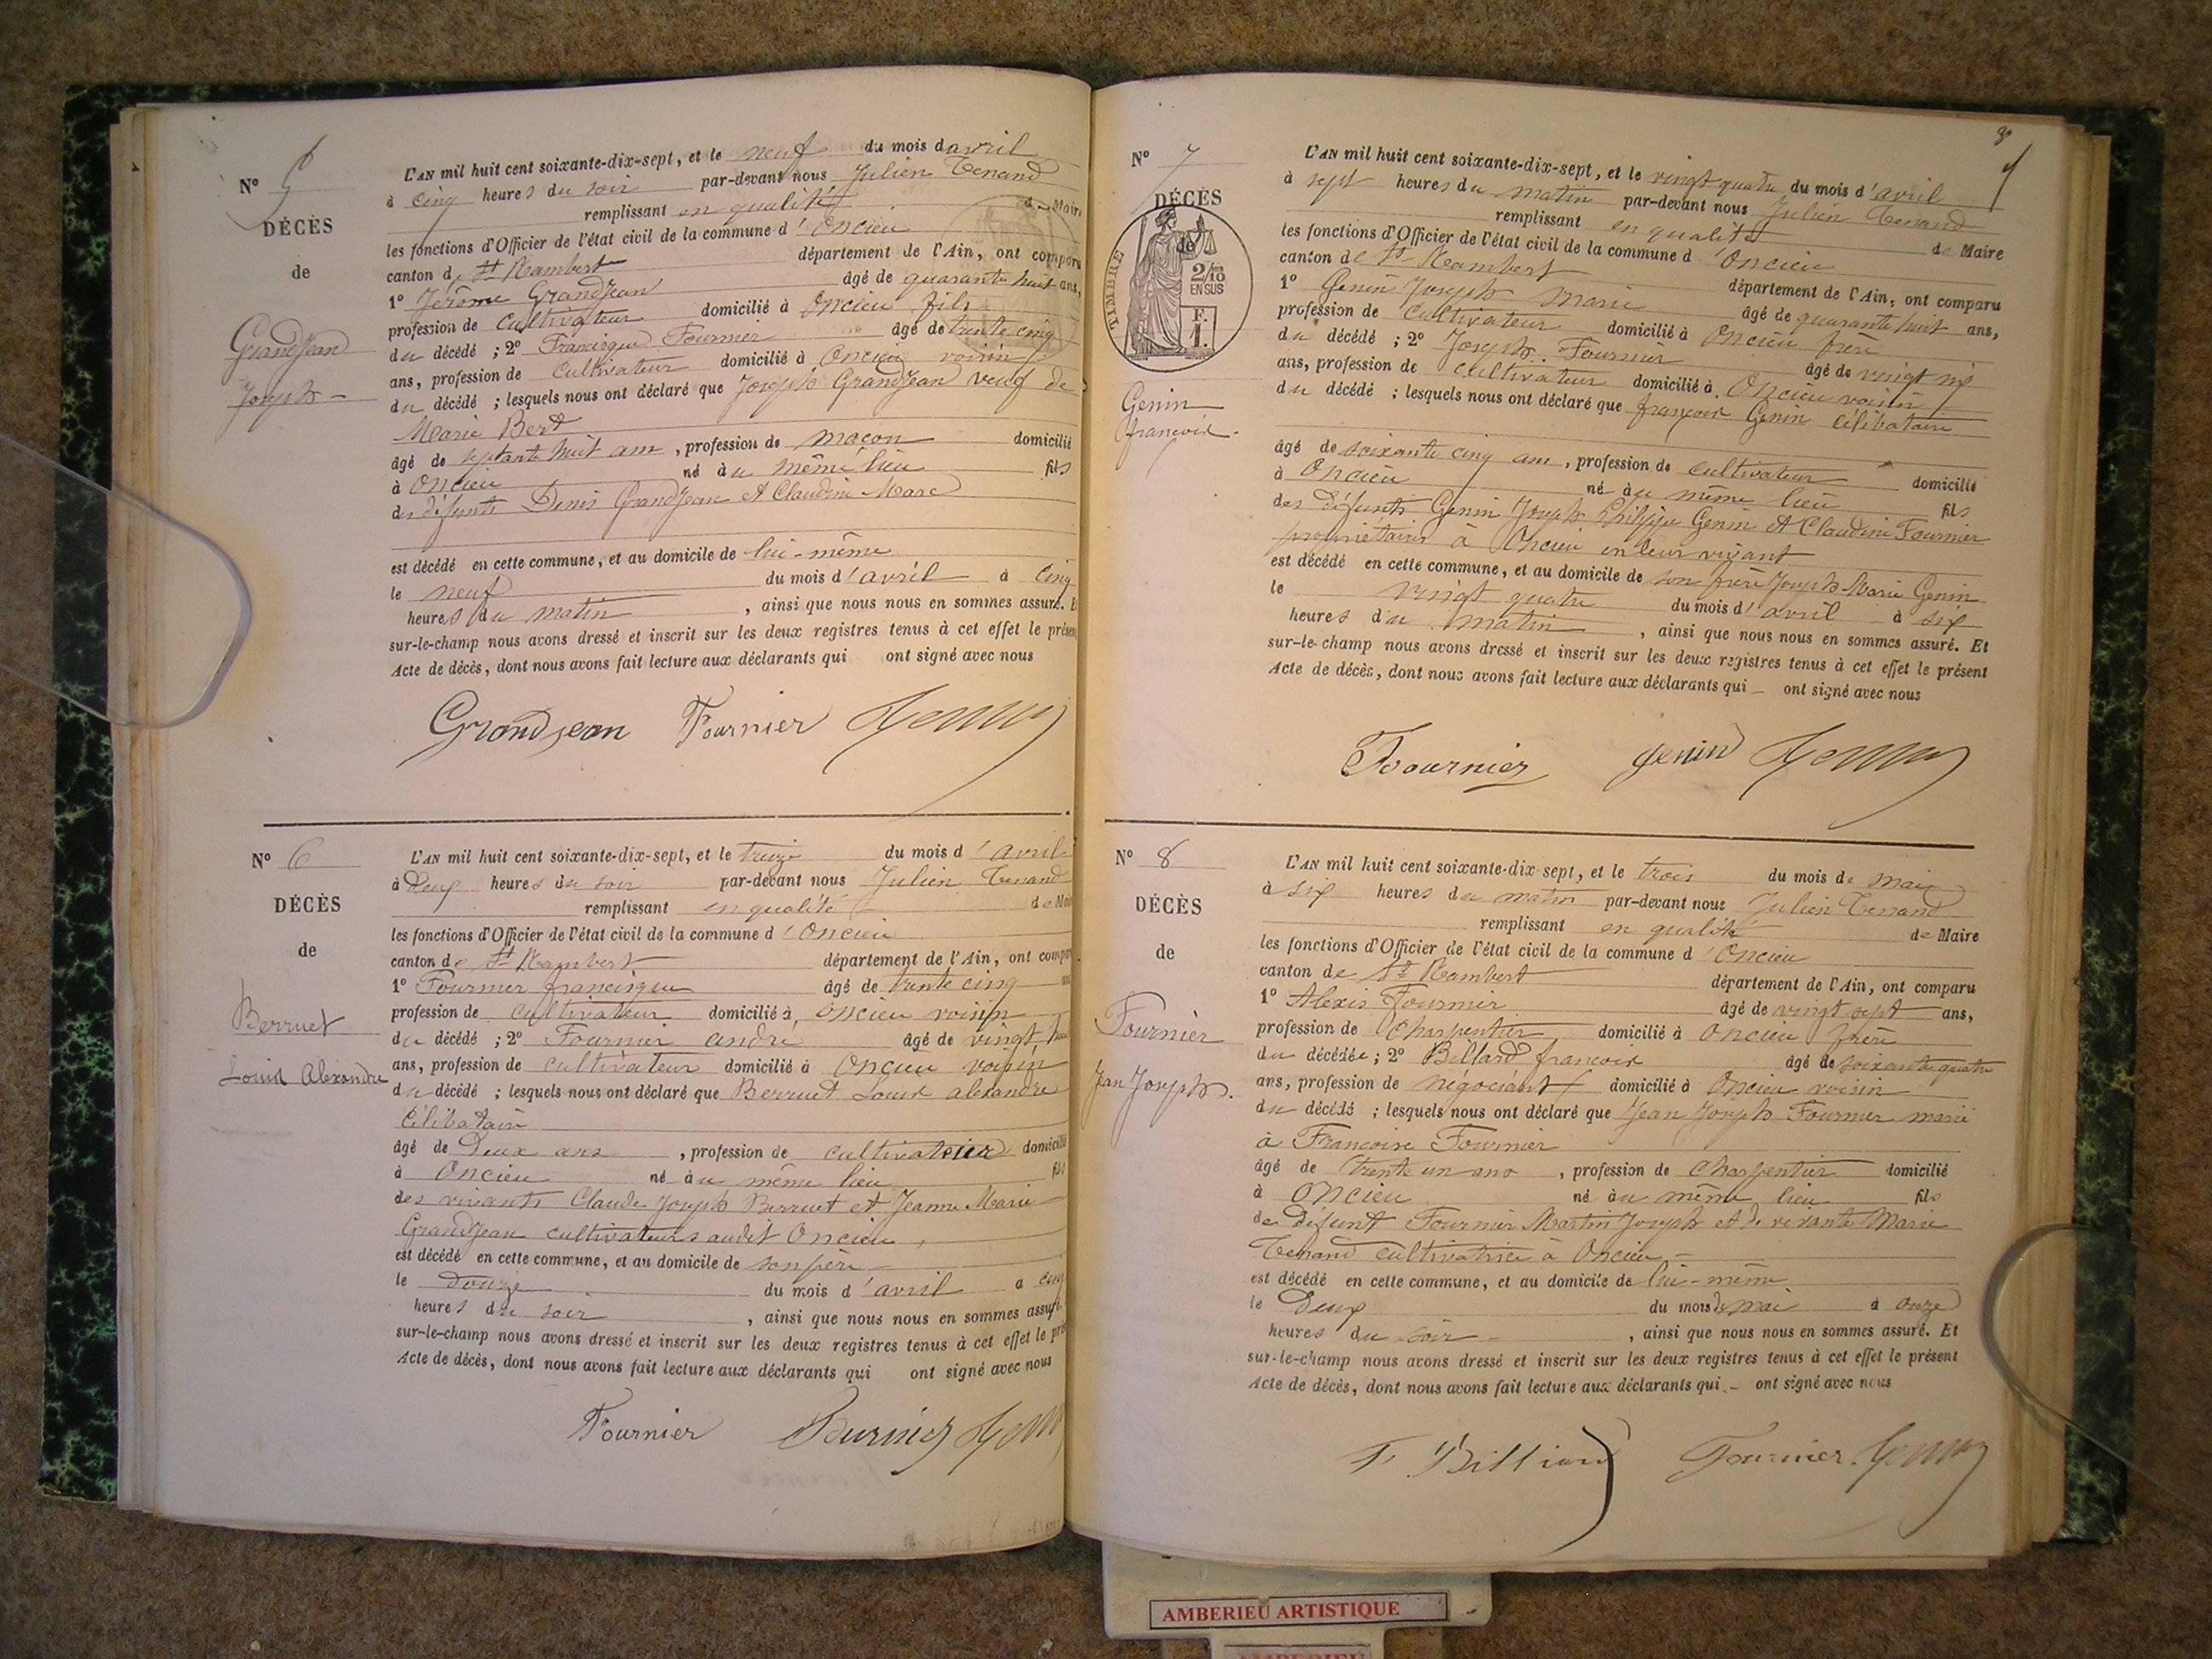 N° 5
DÉCÈS
de
Grandjean
Joseph
L'AN mil huit cent soixante-dix-sept, et le neuf du mois d'avril
à cinq heures du soir par-devant nous Julien Tenand
remplissant en qualité de Maire
les fonctions d'Officier de l'état civil de la commune d'Oncieu
canton de St Rambert département de l'Ain, ont comparu
1° Jérôme Grandjean âgé de quarante huit ans,
profession de cultivateur domicilié à Oncieu fils
du décédé ; 2° Francisque Fournier âgé de trente cinq
ans, profession de cultivateur domicilié à Oncieu voisin
du décédé ; lesquels nous ont déclaré que Joseph Grandjean veuf de
Marie Bert
âgé de septante huit ans, profession de maçon domicilié
à Oncieu né au même lieu fils
des défunts Denis Grandjean et Claudine Marc
est décédé en cette commune, et au domicile de lui-même
le neuf du mois d'avril à cinq
heures du matin, ainsi que nous nous en sommes assuré. Et
sur-le-champ nous avons dressé et inscrit sur les deux registres tenus à cet effet le présent
Acte de décès, dont nous avons fait lecture aux déclarants qui ont signé avec nous
Grandjean Fournier
N° 6
DÉCÈS
de
Berruet
Louis Alexandre
L'AN mil huit cent soixante-dix-sept, et le treize du mois d'avril
à deux heures du soir par-devant nous Julien Tenand
remplissant en qualité de Maire
les fonctions d'Officier de l'état civil de la commune d'Oncieu
canton de St Rambert département de l'Ain, ont comparu
1° Fournier francisque âgé de trente cinq ans
profession de cultivateur domicilié à Oncieu voisin
du décédé ; 2° Fournier andré âgé de vingt
ans, profession de cultivateur domicilié à Oncieu voisin
du décédé ; lesquels nous ont déclaré que Berruet Louis alexandre
célibataire
âgé de deux ans, profession de cultivateur domicilié
à Oncieu né au même lieu fils
des vivants Claude Joseph Berruet et Jeanne Marie
Grandjean cultivateurs audit Oncieu
est décédé en cette commune, et au domicile de son père
le douze du mois d'avril à cinq
heures du soir, ainsi que nous nous en sommes assuré.
sur-le-champ nous avons dressé et inscrit sur les deux registres tenus à cet effet le pré
Acte de décès, dont nous avons fait lecture aux déclarants qui ont signé avec nous
Fournier
N° 7
DÉCÈS
de
TIMBRE
2/10 EN SUS
F. 1.
Genin
françois
L'AN mil huit cent soixante-dix-sept, et le vingt quatre du mois d'avril
à sept heures du matin par-devant nous Julien Tenand
remplissant en qualité de Maire
les fonctions d'Officier de l'état civil de la commune d'Oncieu
canton de St Rambert département de l'Ain, ont comparu
1° Genin Joseph Marie âgé de quarante huit ans,
profession de cultivateur domicilié à Oncieu frère
du décédé ; 2° Joseph Fournier âgé de vingt six
ans, profession de cultivateur domicilié à Oncieu voisin
du décédé ; lesquels nous ont déclaré que françois Genin célibataire
âgé de soixante cinq ans, profession de cultivateur domicilié
à Oncieu né au même lieu fils
des défunts Genin Joseph Philippe Genin et Claudine Fournier
propriétaires à Oncieu en leur vivant
est décédé en cette commune, et au domicile de son frère Joseph-Marie Genin
le vingt quatre du mois d'avril à six
heures du matin, ainsi que nous nous en sommes assuré. Et
sur-le-champ nous avons dressé et inscrit sur les deux registres tenus à cet effet le présent
Acte de décès, dont nous avons fait lecture aux déclarants qui ont signé avec nous
Fournier genin
N° 8
DÉCÈS
de
Fournier
Jean Joseph.
L'AN mil huit cent soixante-dix-sept, et le trois du mois de mai
à six heures du matin par-devant nous Julien Tenand
remplissant en qualité de Maire
les fonctions d'Officier de l'état civil de la commune d'Oncieu
canton de St Rambert département de l'Ain, ont comparu
1° Alexis Fournier âgé de vingt sept ans,
profession de charpentier domicilié à Oncieu frère
du décédée ; 2° Billard françois âgé de soixante quatre
ans, profession de négociant domicilié à Oncieu voisin
du décédé ; lesquels nous ont déclaré que Jean Joseph Fournier marié
à Françoise Fournier
âgé de trente un ans, profession de charpentier domicilié
à Oncieu né au même lieu fils
de défunt Fournier Martin Joseph et de vivante Marie
Tenand cultivatrice à Oncieu
est décédé en cette commune, et au domicile de lui-même
le deux du mois de mai à onze
heures du soir, ainsi que nous nous en sommes assuré. Et
sur-le-champ nous avons dressé et inscrit sur les deux registres tenus à cet effet le présent
Acte de décès, dont nous avons fait lecture aux déclarants qui ont signé avec nous
Fournier
AMBERIEU ARTISTIQUE
AMBERIEU